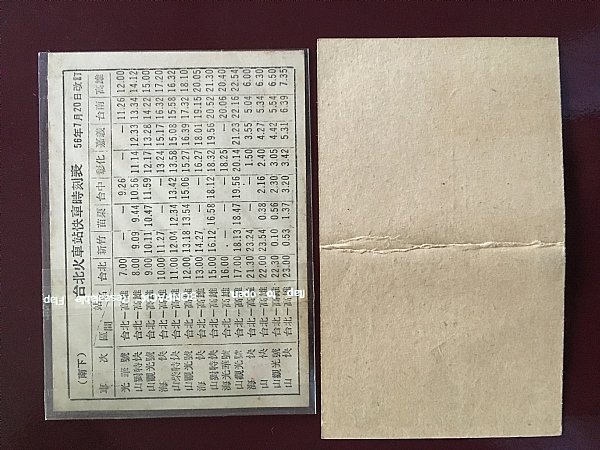 (南下) 台北火車站快車時刻表 56年7月20日改訂
車次 區間 站名 台北 新竹 苗栗 台中 彰化 嘉義 台南 高雄
光華號 台北—高雄 7.00 — — 9.26 — — 11.26 12.00
山對特快 台北—高雄 8.00 9.09 9.44 10.56 11.14 12.33 13.34 14.12
山觀光號 台北—高雄 9.00 10.11 10.47 11.59 12.17 13.28 14.22 15.00
海 快 台北—高雄 10.00 11.27 — — 13.24 15.17 16.32 17.20
山柴特快 台北—高雄 11.00 12.00 12.34 13.42 13.58 15.08 15.58 16.32
山觀光號 台北—高雄 12.00 13.18 13.54 15.06 15.27 16.39 17.32 18.10
海 快 台北—高雄 13.00 14.27 — — 16.27 18.01 19.15 20.05
山對特快 台北—高雄 15.00 16.12 16.58 18.12 18.32 19.56 20.52 21.30
海光華號 台北—高雄 16.00 — — — 18.25 — 20.06 20.40
山觀光號 台北—高雄 17.00 18.13 18.47 19.56 20.14 21.23 22.16 22.54
海 快 台北—高雄 21.30 23.24 — — 1.50 3.55 5.04 6.00
山 快 台北—高雄 22.00 23.54 0.38 2.16 2.40 4.27 5.34 6.30
山觀光號 台北—高雄 22.30 0.10 0.56 2.30 3.05 4.42 5.54 6.50
山 快 台北—高雄 23.00 0.53 1.37 3.20 3.42 5.31 6.39 7.35
Flap
To Open
Resealable
Flap